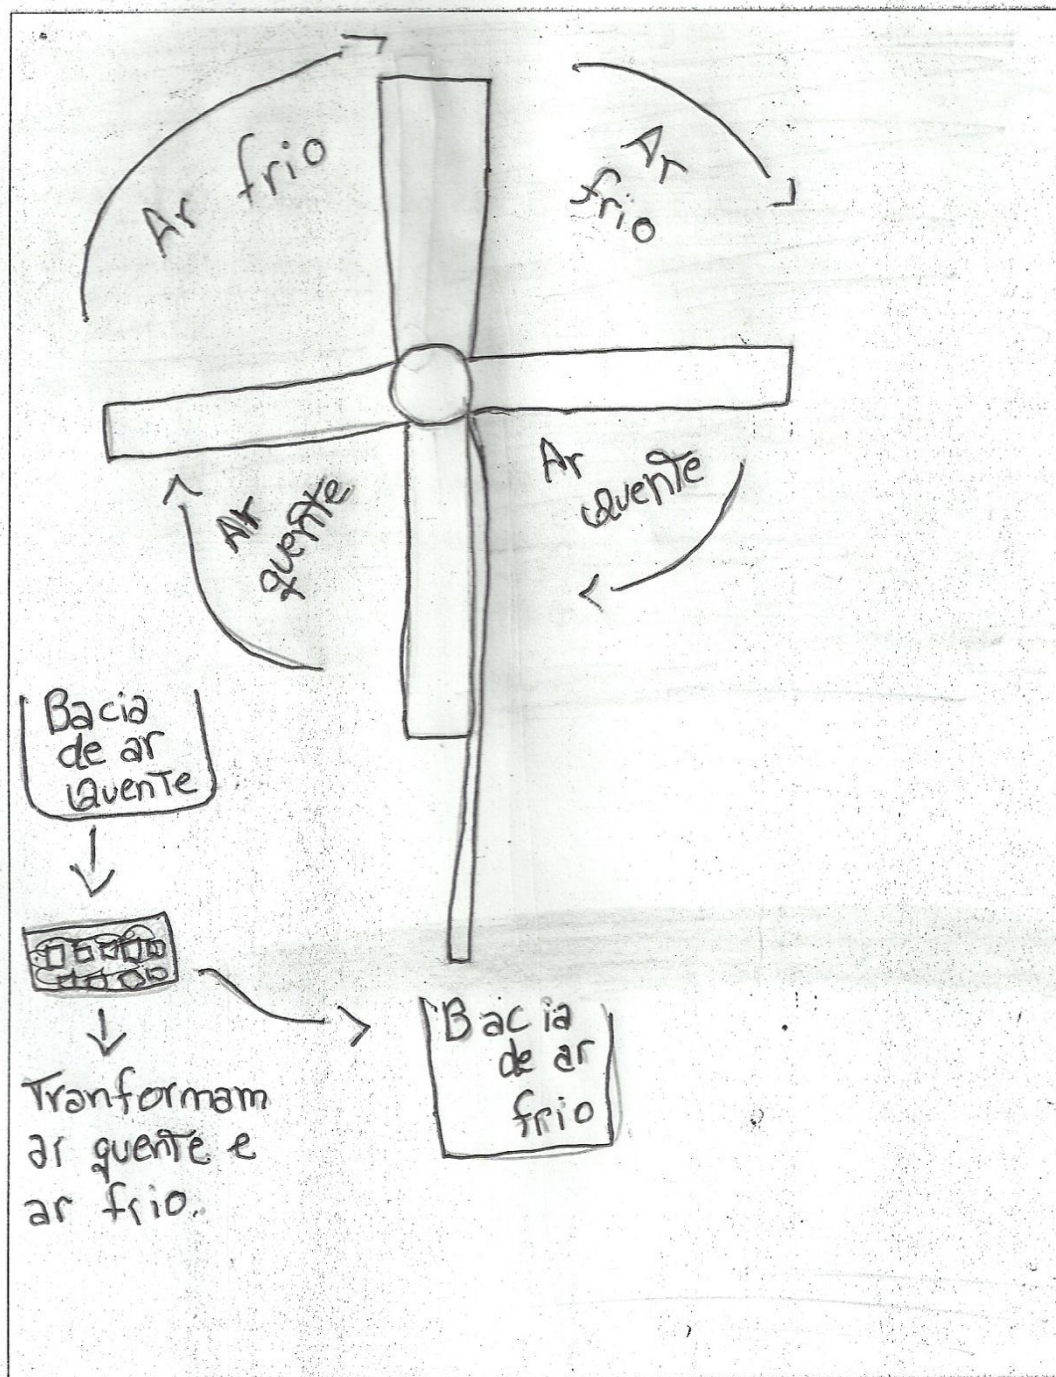 Ar frio
Ar
frio
Ar
quente
Ar
quente
Bacia
de ar
quente
Bacia
de ar
frio
Tranformam
ar quente e
ar frio.